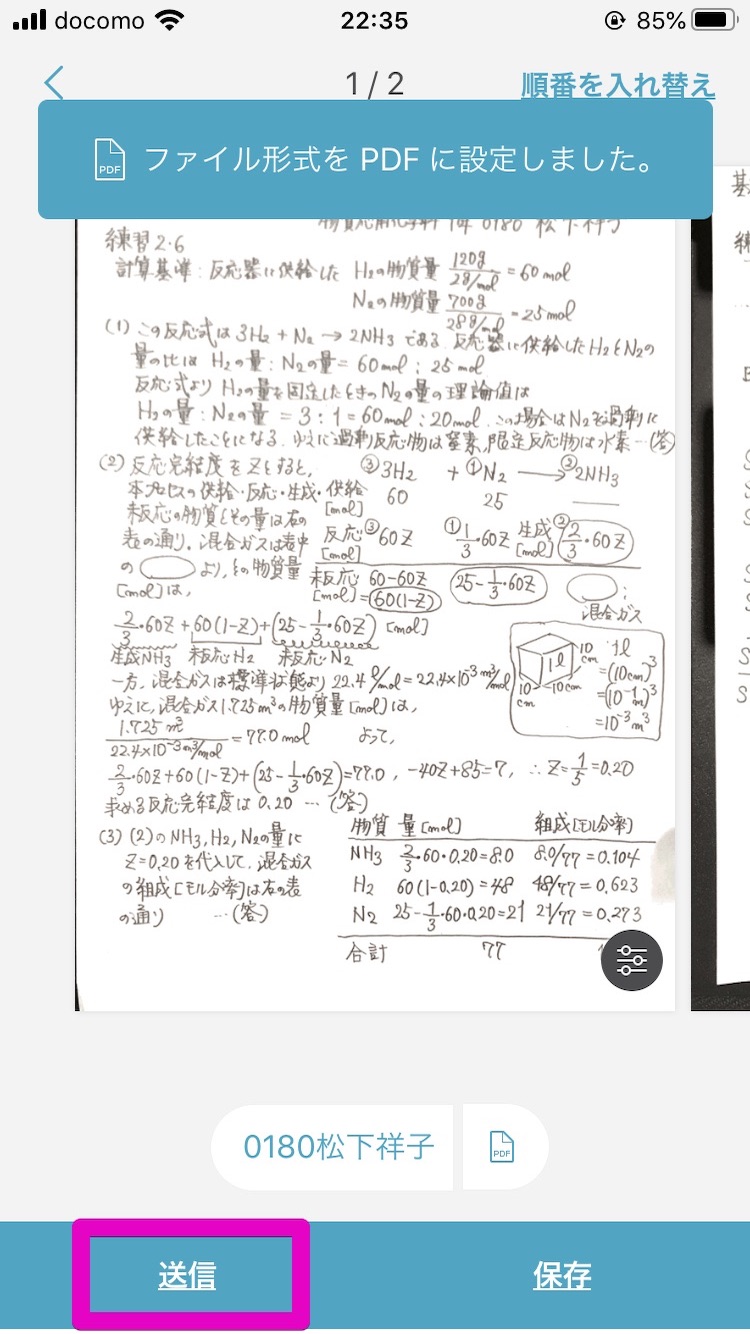 docomo 22:35 85%
1 / 2 順番を入れ替え
PDF ファイル形式を PDF に設定しました。
1年 0180 松下祥子
練習2・6
計算基準:反応器に供給した H₂の物質量 120g/2g/mol = 60 mol
N₂の物質量 700g/28g/mol = 25 mol
(1) この反応式は 3H₂ + N₂ → 2NH₃ である。反応器に供給したH₂とN₂の
量の比は H₂の量:N₂の量 = 60mol : 25 mol
反応式より H₂の量を固定したときのN₂の量の理論値は
H₂の量:N₂の量 = 3:1 = 60mol : 20mol. この場合はN₂を過剰に
供給したことになる。ゆえに過剰反応物は窒素、限定反応物は水素…(答)
(2) 反応完結度をZとすると, ③3H₂ + ①N₂ → ②2NH₃
本プロセスの供給・反応・生成・供給[mol] 60 25 —
未反応の物質とその量は右の
表の通り。混合ガスは表中 反応[mol] ③60Z ①1/3・60Z 生成[mol] ②2/3・60Z
の◯より, その物質量 未反応[mol] 60-60Z=60(1-Z) 25-1/3・60Z ◯:混合ガス
[mol]は,
2/3・60Z+60(1-Z)+(25-1/3・60Z) [mol]
生成NH₃ 未反応H₂ 未反応N₂
1l 10cm 10cm 10cm 1l =(10cm)³ =(10⁻¹m)³ =10⁻³m³
一方, 混合ガスは標準状態より 22.4 l/mol = 22.4×10⁻³ m³/mol
ゆえに, 混合ガス1.725m³の物質量[mol]は,
1.725 m³/22.4×10⁻³m³/mol = 77.0 mol よって,
2/3・60Z+60(1-Z)+(25-1/3・60Z)=77.0, -40Z+85=7, ∴Z=1/5=0.20
求める反応完結度は 0.20 …(答)
(3) (2)のNH₃, H₂, N₂の量に 物質 量[mol] 組成[モル分率]
Z=0.20を代入して, 混合ガス NH₃ 2/3・60・0.20=8.0 8.0/77=0.104
の組成[モル分率]は右の表 H₂ 60(1-0.20)=48 48/77=0.623
の通り …(答) N₂ 25-1/3・60・0.20=21 21/77=0.273
合計 77
0180松下祥子 PDF
送信 保存